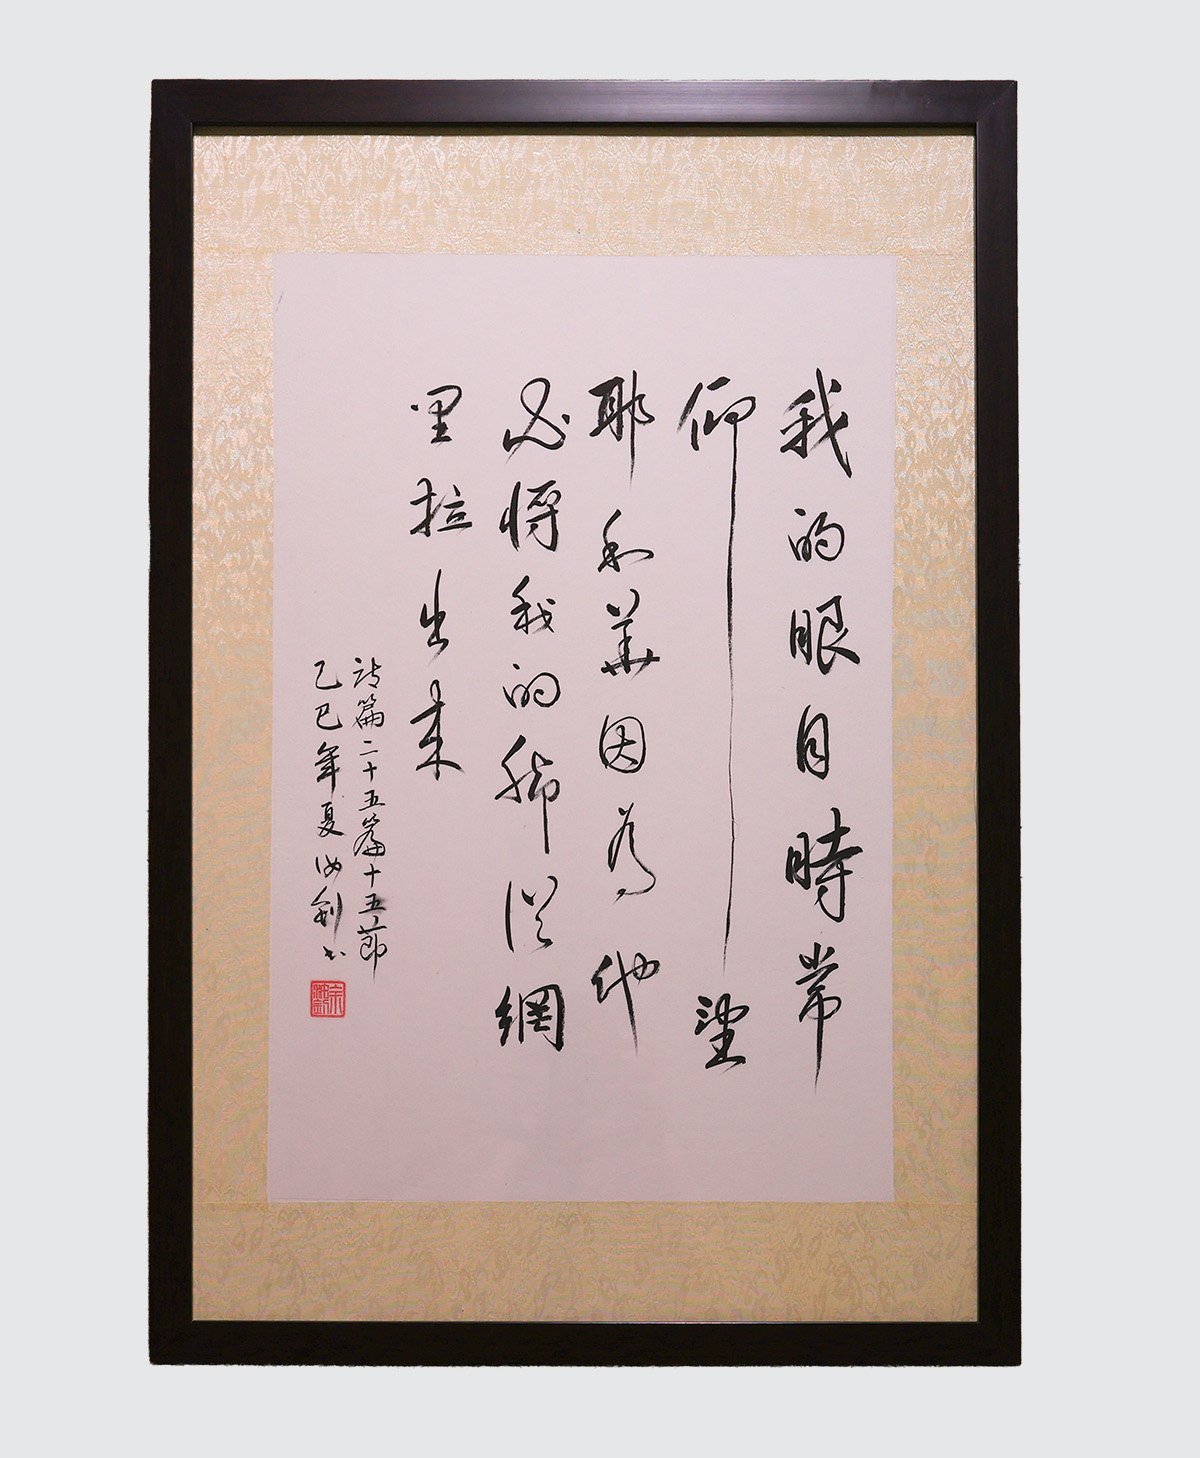 我的眼目時常
仰望
耶和華因為他
必將我的腳從網
里拉出来
詩篇二十五篇十五節
乙巳年夏 劍书